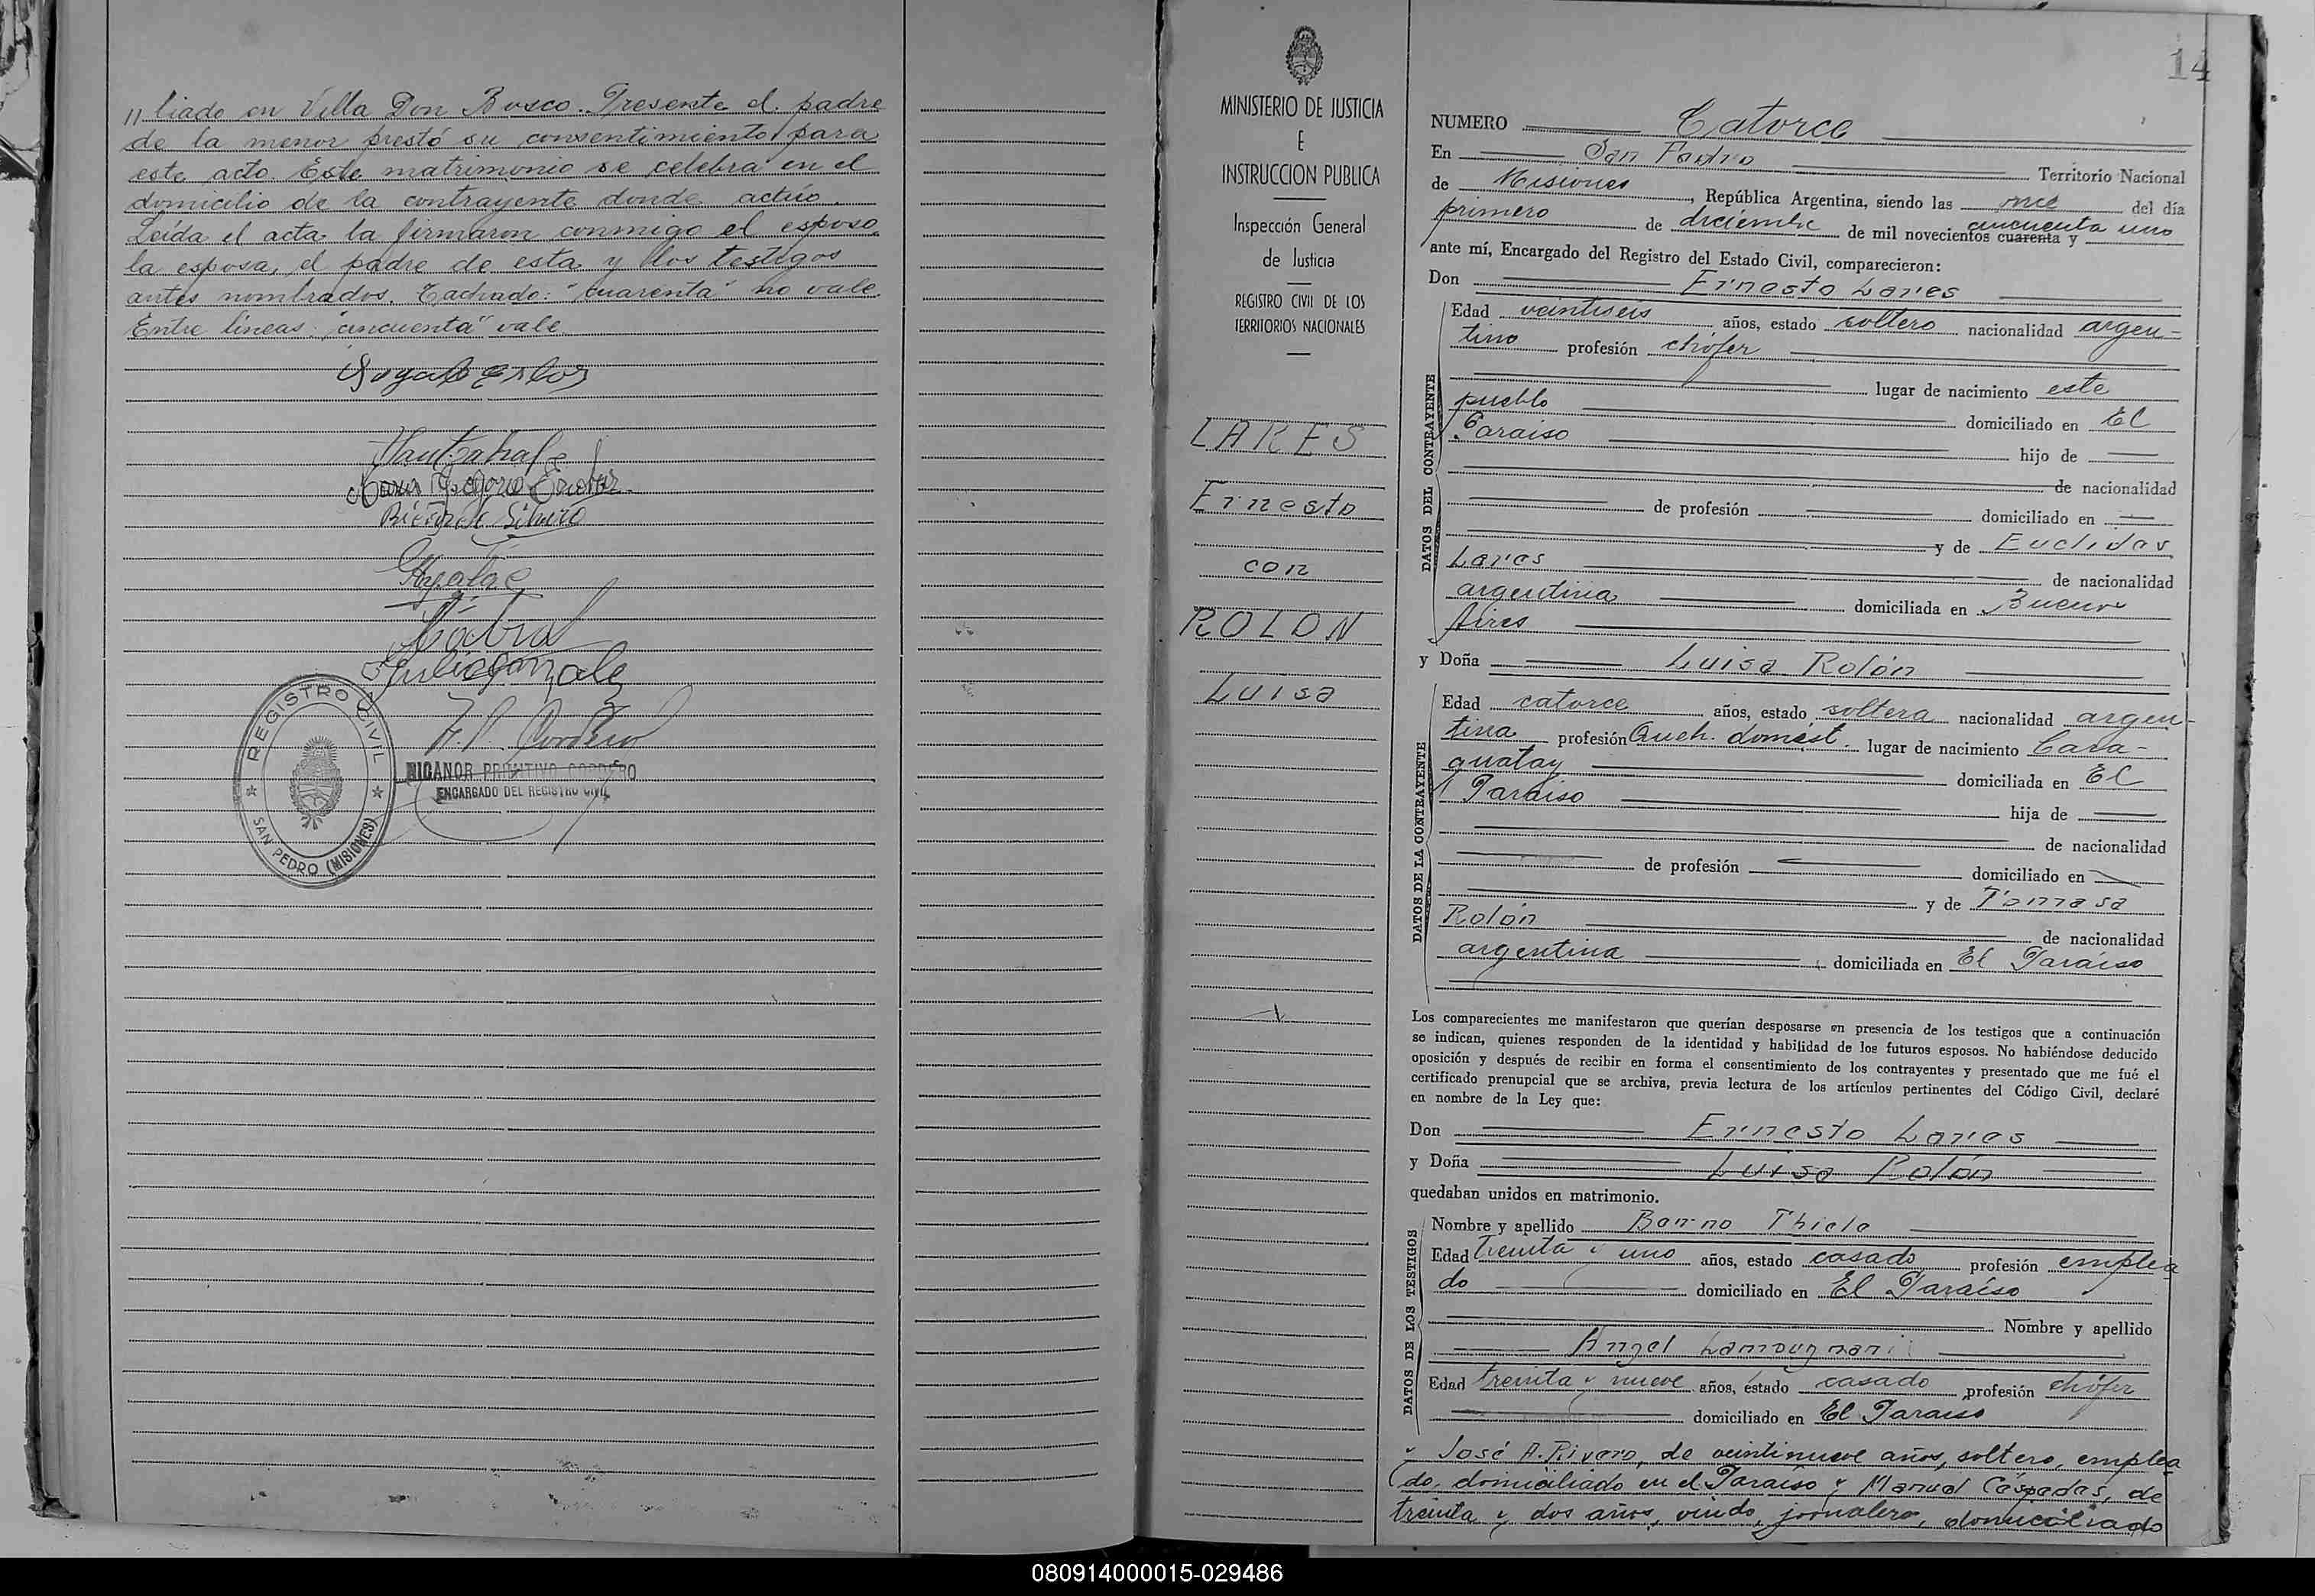 // liado en Villa Don Bosco. Presente el padre
de la menor prestó su consentimiento para
este acto. Este matrimonio se celebra en el
domicilio de la contrayente donde actúo.
Leída el acta la firmaron conmigo el esposo,
la esposa, el padre de esta y los testigos
antes nombrados. Tachado: "cuarenta" no vale.
Entre líneas: "cincuenta" vale.
N. P. Cordero
REGISTRO CIVIL
SAN PEDRO (MISIONES)
NICANOR PRIMITIVO CORDERO
ENCARGADO DEL REGISTRO CIVIL
MINISTERIO DE JUSTICIA
E
INSTRUCCION PUBLICA
Inspección General
de Justicia
REGISTRO CIVIL DE LOS
TERRITORIOS NACIONALES
LARES
Ernesto
con
ROLON
Luisa
14
NUMERO Catorce
En San Pedro Territorio Nacional
de Misiones, República Argentina, siendo las once del día
primero de diciembre de mil novecientos cuarenta y cincuenta uno
ante mí, Encargado del Registro del Estado Civil, comparecieron:
Don Ernesto Lares
DATOS DEL CONTRAYENTE
Edad veintiseis años, estado soltero nacionalidad argen-
tino profesión chófer
lugar de nacimiento este
pueblo domiciliado en El
Paraiso hijo de
de nacionalidad
de profesión domiciliado en
y de Euclidas
Lares de nacionalidad
argentina domiciliada en Buenos
Aires
y Doña Luisa Rolón
DATOS DE LA CONTRAYENTE
Edad catorce años, estado soltera nacionalidad argen-
tina profesión Queh. domést. lugar de nacimiento Cara-
guatay domiciliada en El
Paraiso hija de
de nacionalidad
de profesión domiciliado en
y de Tomasa
Rolón de nacionalidad
argentina domiciliada en El Paraiso
Los comparecientes me manifestaron que querían desposarse en presencia de los testigos que a continuación
se indican, quienes responden de la identidad y habilidad de los futuros esposos. No habiéndose deducido
oposición y después de recibir en forma el consentimiento de los contrayentes y presentado que me fué el
certificado prenupcial que se archiva, previa lectura de los artículos pertinentes del Código Civil, declaré
en nombre de la Ley que:
Don Ernesto Lares
y Doña Luisa Rolón
quedaban unidos en matrimonio.
DATOS DE LOS TESTIGOS
Nombre y apellido Benno Thiele
Edad treinta y uno años, estado casado profesión emplea
do domiciliado en El Paraiso
Nombre y apellido
Angel
Edad treinta y nueve años, estado casado profesión chófer
domiciliado en El Paraiso
y José A. Rivero, de veintinueve años, soltero, emplea
do, domiciliado en el Paraiso y Manuel Céspedes, de
treinta y dos años, viudo, jornalero, domiciliado
080914000015-029486